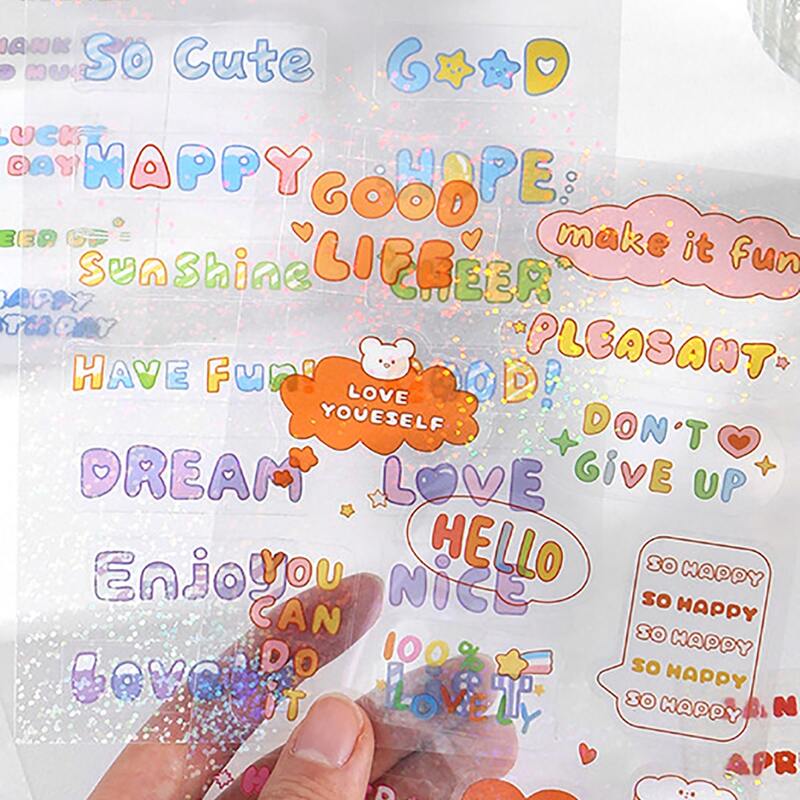 So Cute
GOOD
LUCKY
DAY
HAPPY
HOPE
GOOD
LIFE
make it fun
SunShine
CHEER
PLEASANT
HAVE Fun!
GOOD!
LOVE
YOUESELF
DON'T
GiVE UP
DREAM
LOVE
HELLO
Enjoy
NiCE
YOU
CAN
DO
IT
SO HAPPY
SO HAPPY
SO HAPPY
SO HAPPY
SO HAPPY
Lovely
100%
LOVELY